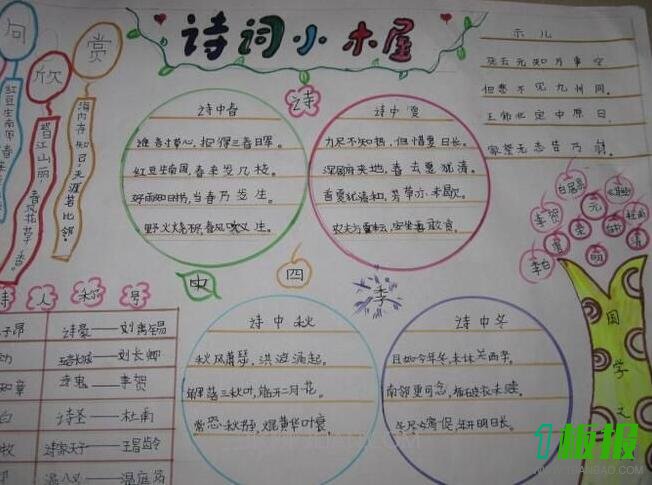 诗词小木屋
句
欣
赏
红豆生南国
迟日江山丽,
春风花草香。
海内存知己,天涯若比邻。
诗
中
四
季
诗中春
谁言寸草心,报得三春晖。
红豆生南国,春来发几枝。
好雨知时节,当春乃发生。
野火烧不尽,春风吹又生。
诗中夏
力尽不知热,但惜夏日长。
深居俯夹城,春去夏犹清。
首夏犹清和,芳草亦未歇。
诗中秋
秋风萧瑟,洪波涌起。
解落三秋叶,能开二月花。
常恐秋节至,焜黄华叶衰。
诗中冬
且如今年冬,未休关西卒。
南邻更可念,布破衣未赎。
示儿
死去元知万事空
但悲不见九州同。
王师北定中原日
家祭无忘告乃翁。
白居易
杜甫
李贺
李白
元
宋
唐
明
清
国学
诗人称号
子昂
诗豪——刘禹锡
五言长城——刘长卿
知章
诗鬼——李贺
白
诗圣——杜甫
牧
诗家天子——王昌龄
温八叉——温庭筠
1板报
WWW.1BANBAO.COM